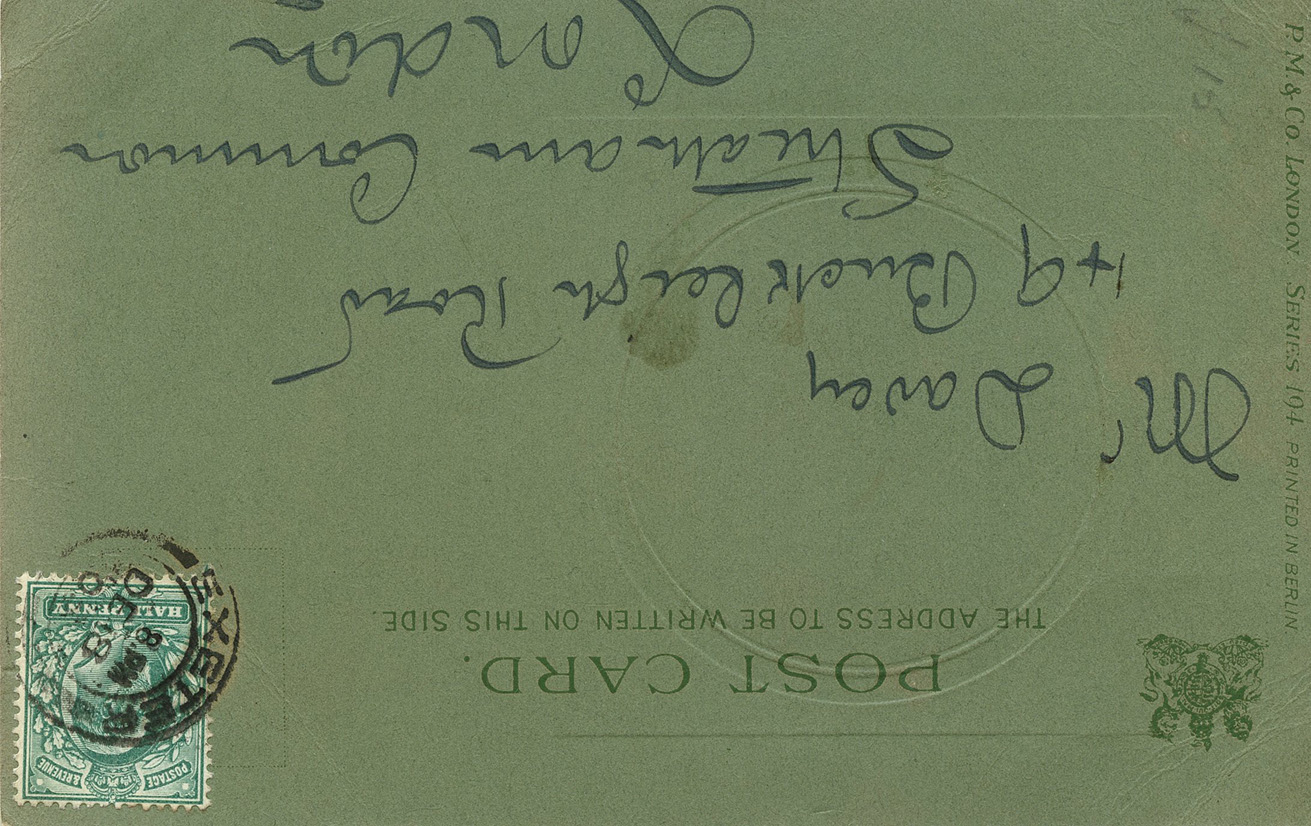 POST CARD.
THE ADDRESS TO BE WRITTEN ON THIS SIDE.
Mr Davey
49 Buckleigh Road
Streatham Common
London
P. M. & Co. LONDON SERIES 104 PRINTED IN BERLIN
POSTAGE & REVENUE
HALFPENNY
EXETER
DE 18